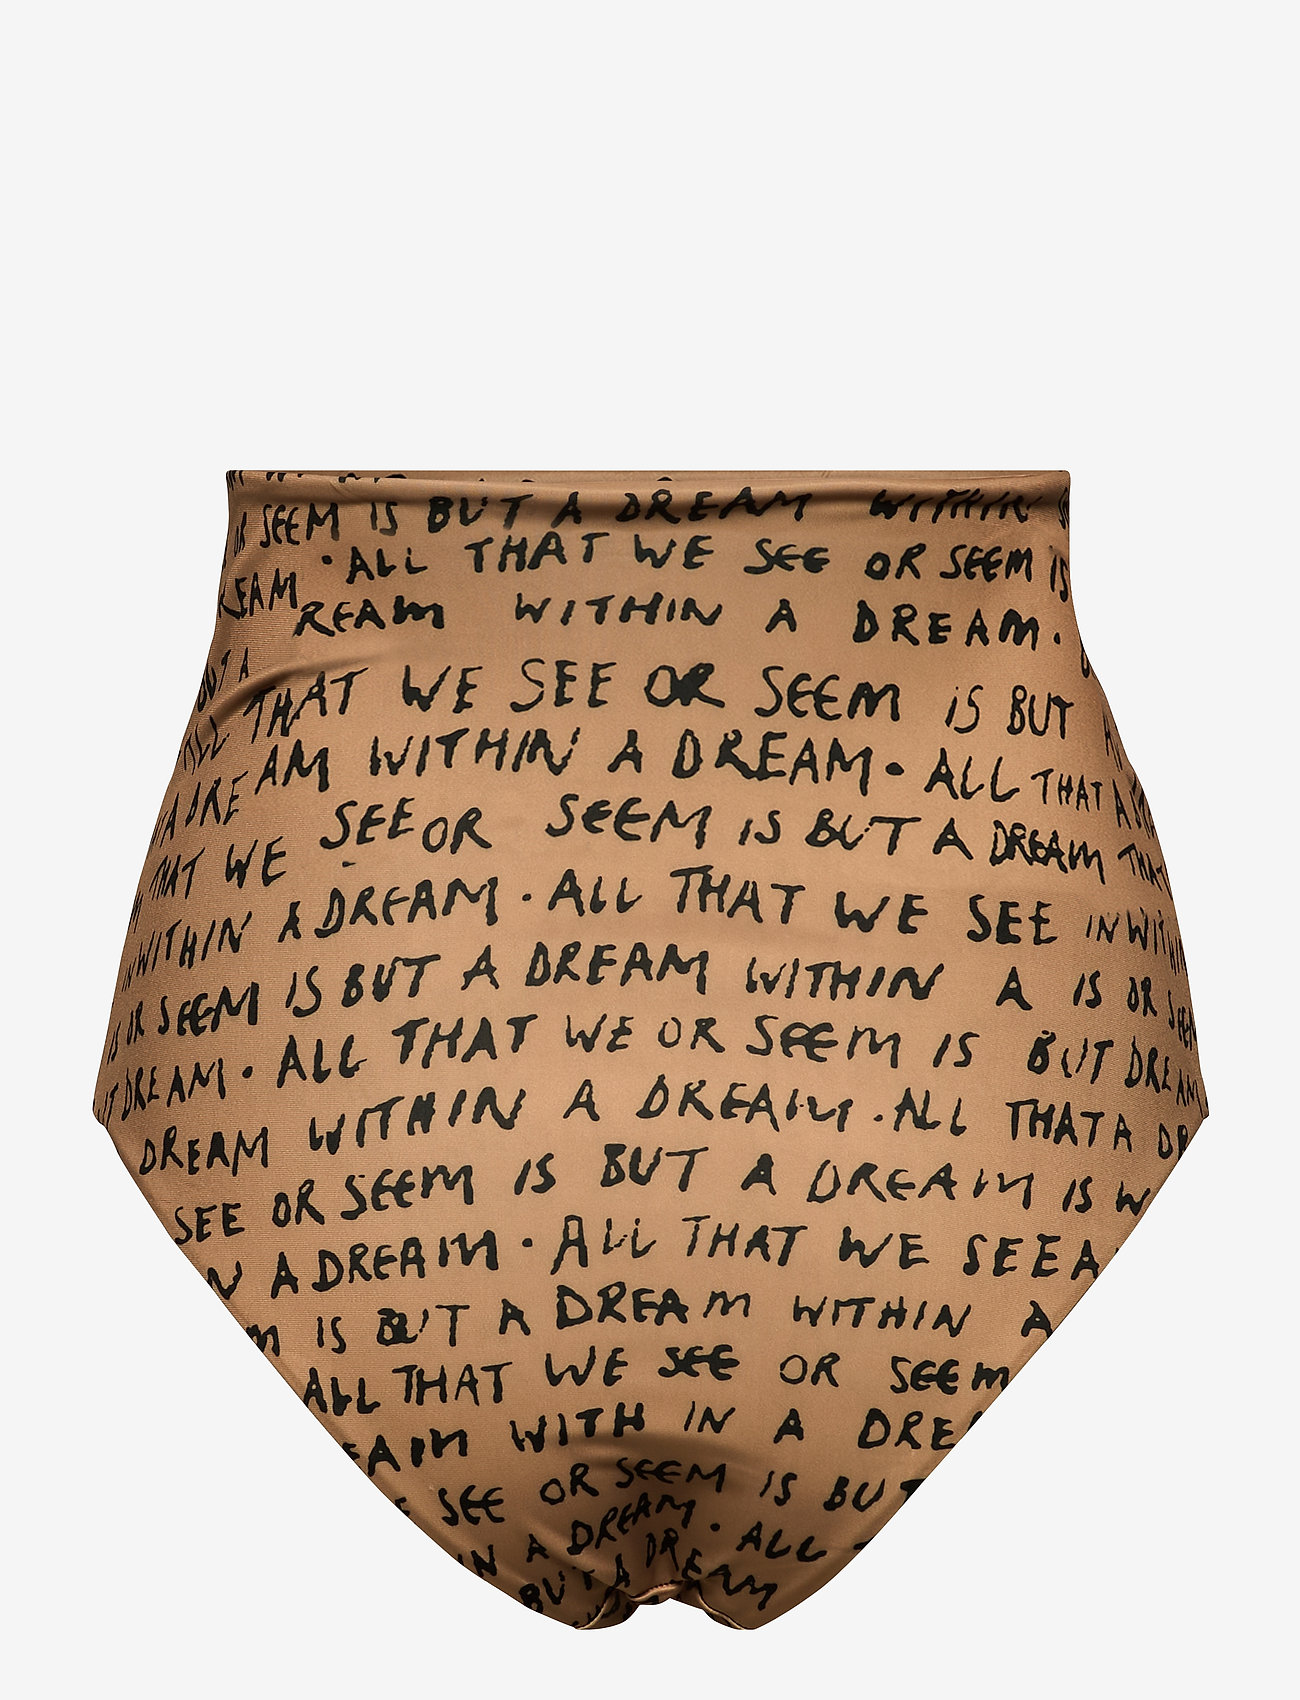 OR SEEM IS BUT A DREAM WITHIN
REAM · ALL THAT WE SEE OR SEEM IS
REAM WITHIN A DREAM ·
BUT A
ALL THAT WE SEE OR SEEM IS BUT
A DREAM WITHIN A DREAM · ALL THAT A
THAT WE SEE OR SEEM IS BUT A DREAM THAT
IN WITHIN A DREAM · ALL THAT WE SEE IN WITHIN
IS OR SEEM IS BUT A DREAM WITHIN A IS OR SEEM
UT DREAM · ALL THAT WE OR SEEM IS BUT DREAM
DREAM WITHIN A DREAM · ALL THAT A DR
SEE OR SEEM IS BUT A DREAM IS W
IN A DREAM · ALL THAT WE SEE A
M IS BUT A DREAM WITHIN A
ALL THAT WE SEE OR SEEM
EAM WITH IN A DREA
E SEE OR SEEM IS BUT
IN A DREAM · ALL
BUT A DREAM